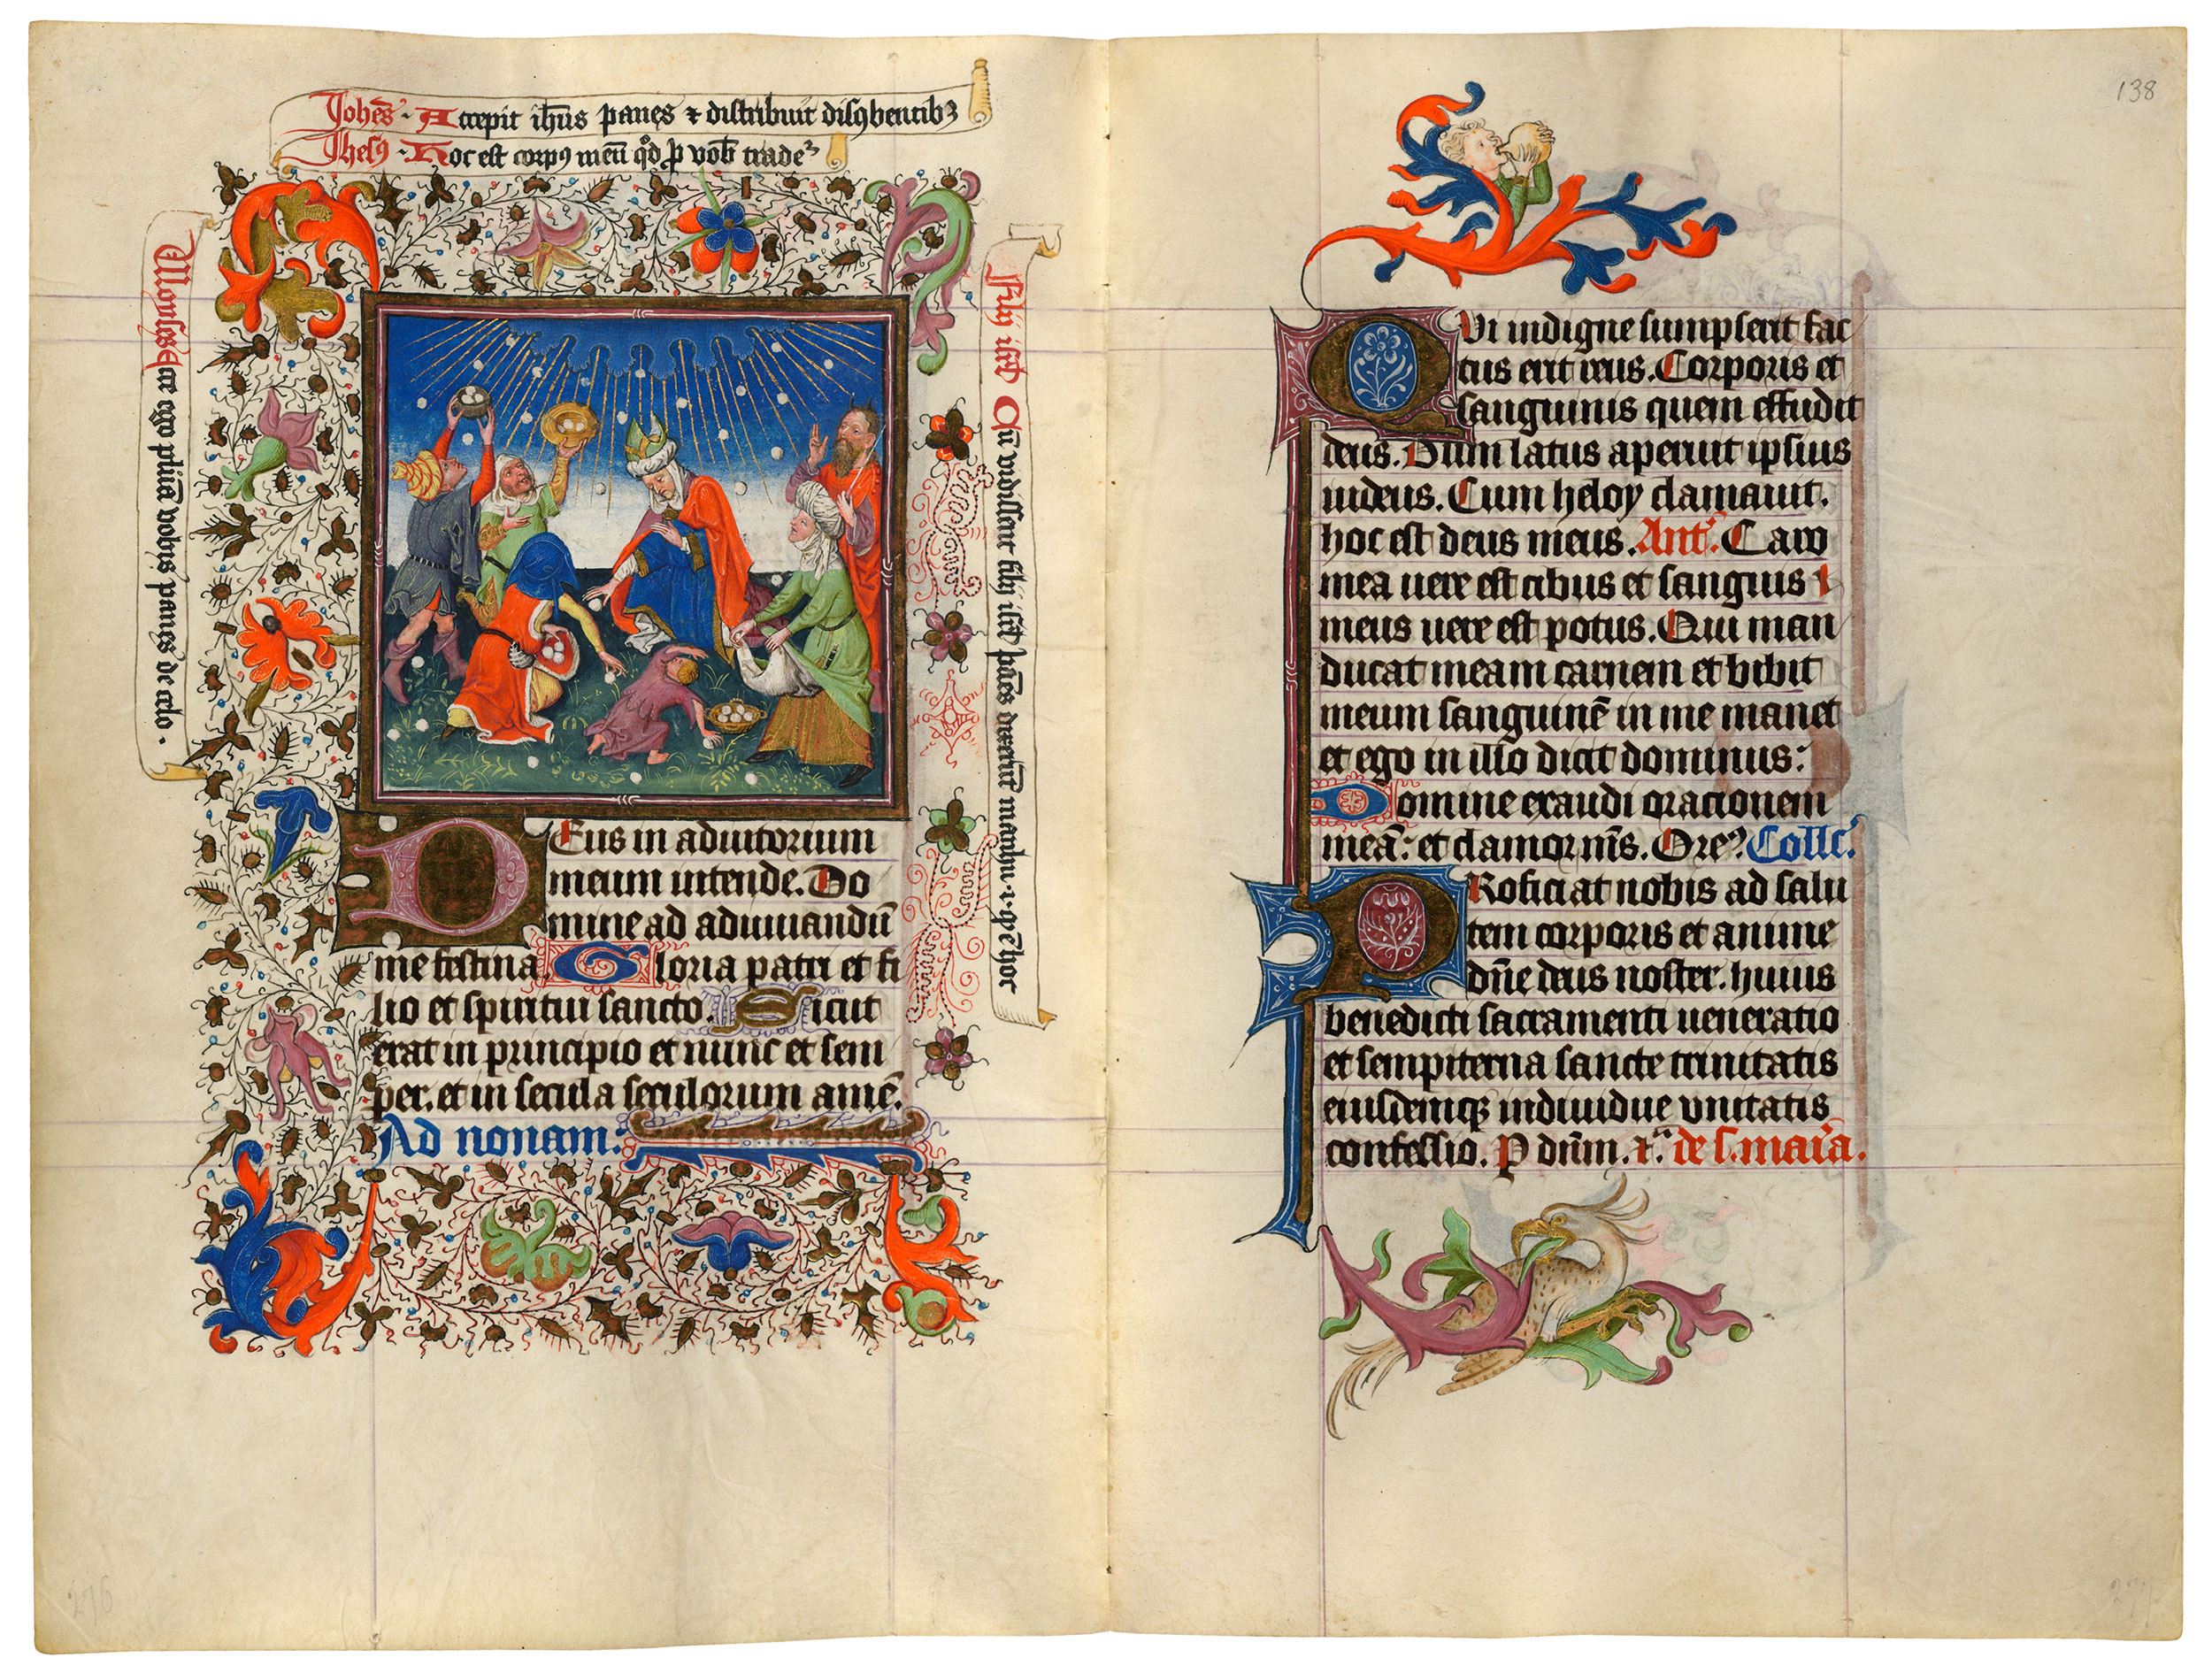 Joh̄es · Accepit ih̄us panes ⁊ distribuit discūbentibꝫ
Ihesꝰ · Hoc est corpꝰ meū qd̓ ꝓ vob̄ tradeᵗ
Moyses Ecce ego pluā vobis panes de celo .
filij isrl̄ Qd̄ cū vidissent filij isrl̄ dixerūt manhu .i. qͥd ē hoc
DEus in adiutorium
meum intende. Do
mine ad adiuuandū
me festina. Gloria patri et fi
lio et spiritui sancto. Sicut
erat in principio et nunc et sem
per. et in secula seculorum amē.
Ad nonam:
276
138
QVi indigne sumpserit fac
tus erit reus. Corporis et
sanguinis quem effudit
deus. Dum latus aperuit ipsius
iudeus. Cum heloy clamauit.
hoc est deus meus. Antᵃ. Caro
mea uere est cibus et sanguis
meus uere est potus. Qui man
ducat meam carnem et bibit
meum sanguinē in me manet
et ego in illo dicit dominus:
Domine exaudi orationem
meā: et clamor m̄s. Oreꝰ Coll̄c.
PRoficiat nobis ad salu
tem corporis et anime
dn̄e deus noster. huius
benedicti sacramenti ueneratio
et sempiterna sancte trinitatis
eiusdemqꝫ indiuidue vnitatis
confessio. P dn̄m. ⁊ͨ. de s. maria.
277